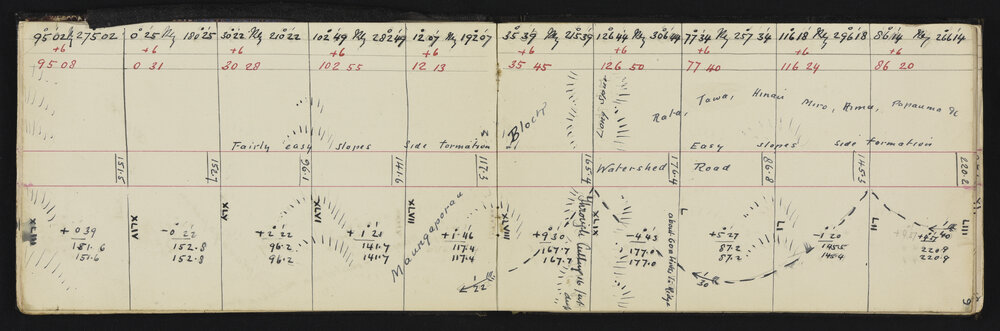 95°02' 275 02 0°25' 180°25' 30 22 210 22 102 49 282 49 12 07 192 07 35 39 215 39 126 44 306 44 77 34 257 34 116 18 296 18 86 14 266 14
+6 +6 +6 +6 +6 +6 +6 +6 +6 +6
95 08 0 31 30 28 102 55 12 13 35 45 126 50 77 40 116 24 86 20
Block
Long spur
Rata, Tawa, Hinau Miro, Rimu, Papauma &c
Fairly easy slopes Side formation Easy slopes side formation
151.5 152.7 96.1 141.6 117.3 165.4 Watershed 176.4 Road 86.8 145.3 220.2
XLIII XLIV XLV XLVI XLVII XLVIII XLIX L LI LII LIII
Maungaporau
Through Cutting 16 feet
about 600 links to Ridge
+ 0 39 -0 22 +2 22 +1 21 +1 46 +9 30 -4 43 +5 27 -1 20
151.6 152.8 96.2 141.7 117.4 167.7 177.0 87.2 145.5 220.9
151.6 152.8 96.2 141.7 117.4 167.7 177.0 87.2 145.4 220.9
1/22 1/30 1/40